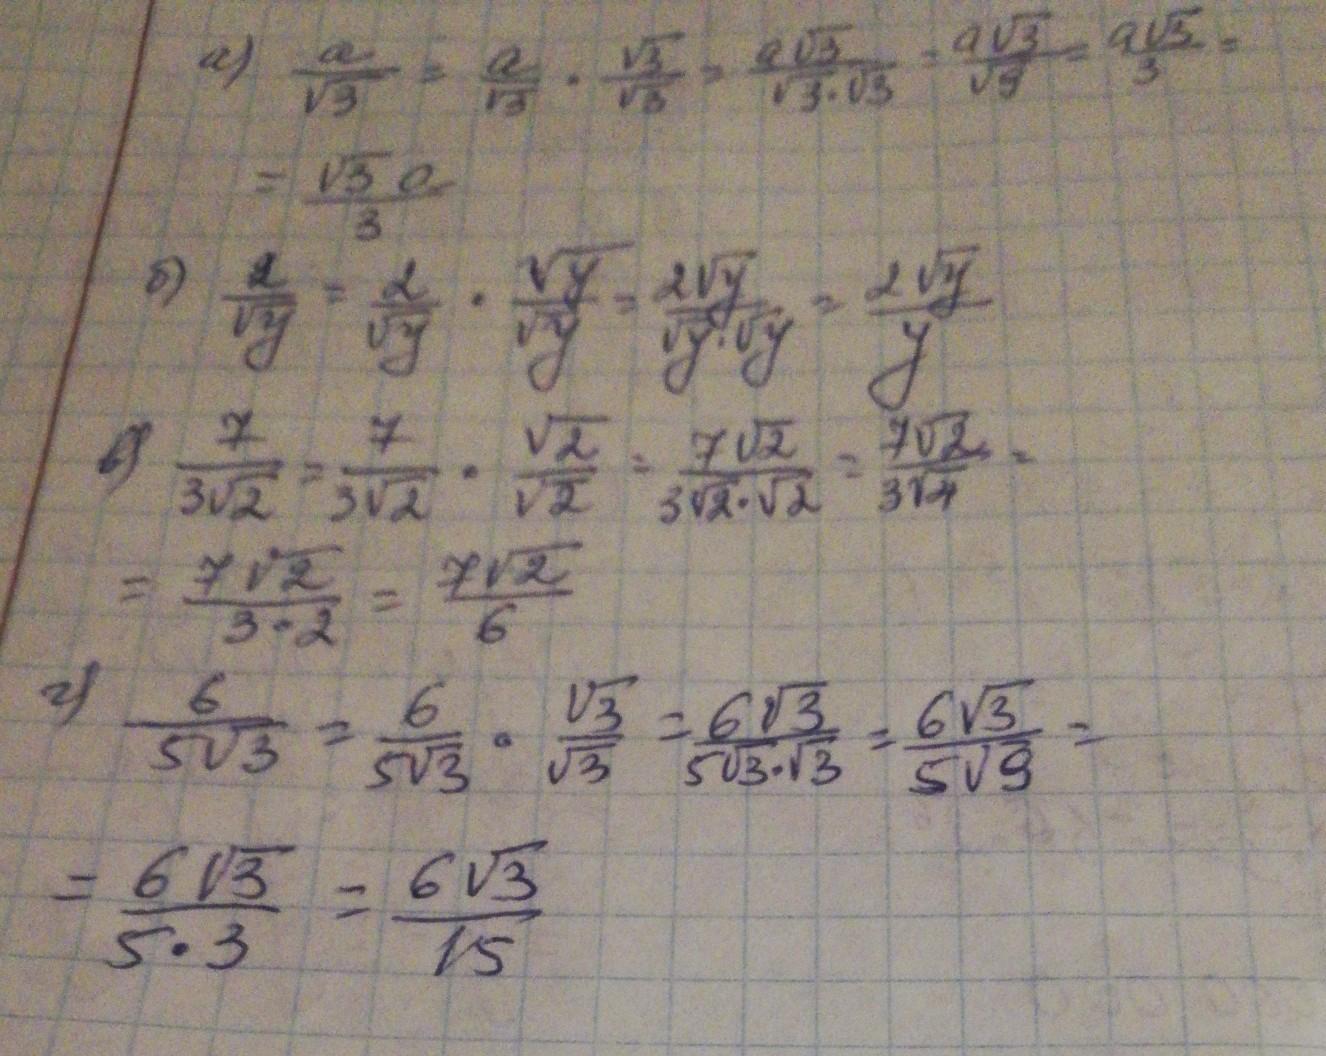 а) a/√3 = a/√3 · √3/√3 = a√3/√3·√3 = a√3/√9 = a√3/3 =
= √3 a/3
б) 2/√y = 2/√y · √y/√y = 2√y/√y·√y = 2√y/y
в) 7/3√2 = 7/3√2 · √2/√2 = 7√2/3√2·√2 = 7√2/3√4 =
= 7√2/3·2 = 7√2/6
г) 6/5√3 = 6/5√3 · √3/√3 = 6√3/5√3·√3 = 6√3/5√9 =
= 6√3/5·3 = 6√3/15